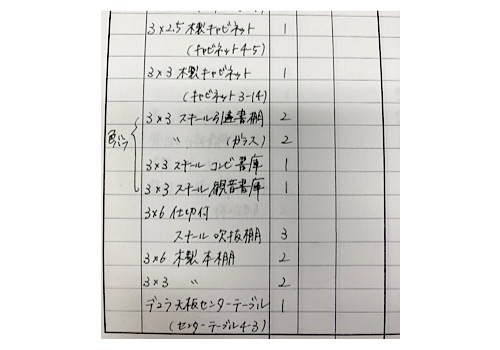 3×2.5 木製キャビネット 1
(キャビネット4-5)
3×3 木製キャビネット 1
(キャビネット3-14)
3×3 スチール引違書棚 2
〃 (ガラス) 2
3×3 スチール コンビ書庫 1
3×3 スチール 観音書庫 1
3×6 仕切付
スチール 吹抜棚 3
3×6 木製本棚 2
3×3 〃 2
デコラ天板センターテーブル 1
(センターテーブル4-3)